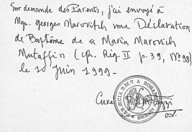 Sur demande des Parents, j'ai envoyé à
Mgr. georges Marovitch une Déclaration
de Baptême de « Maria Marovich
Mutaffi » (cfr. Rég. II p. 39, N° 98)
le 10 juin 1999-